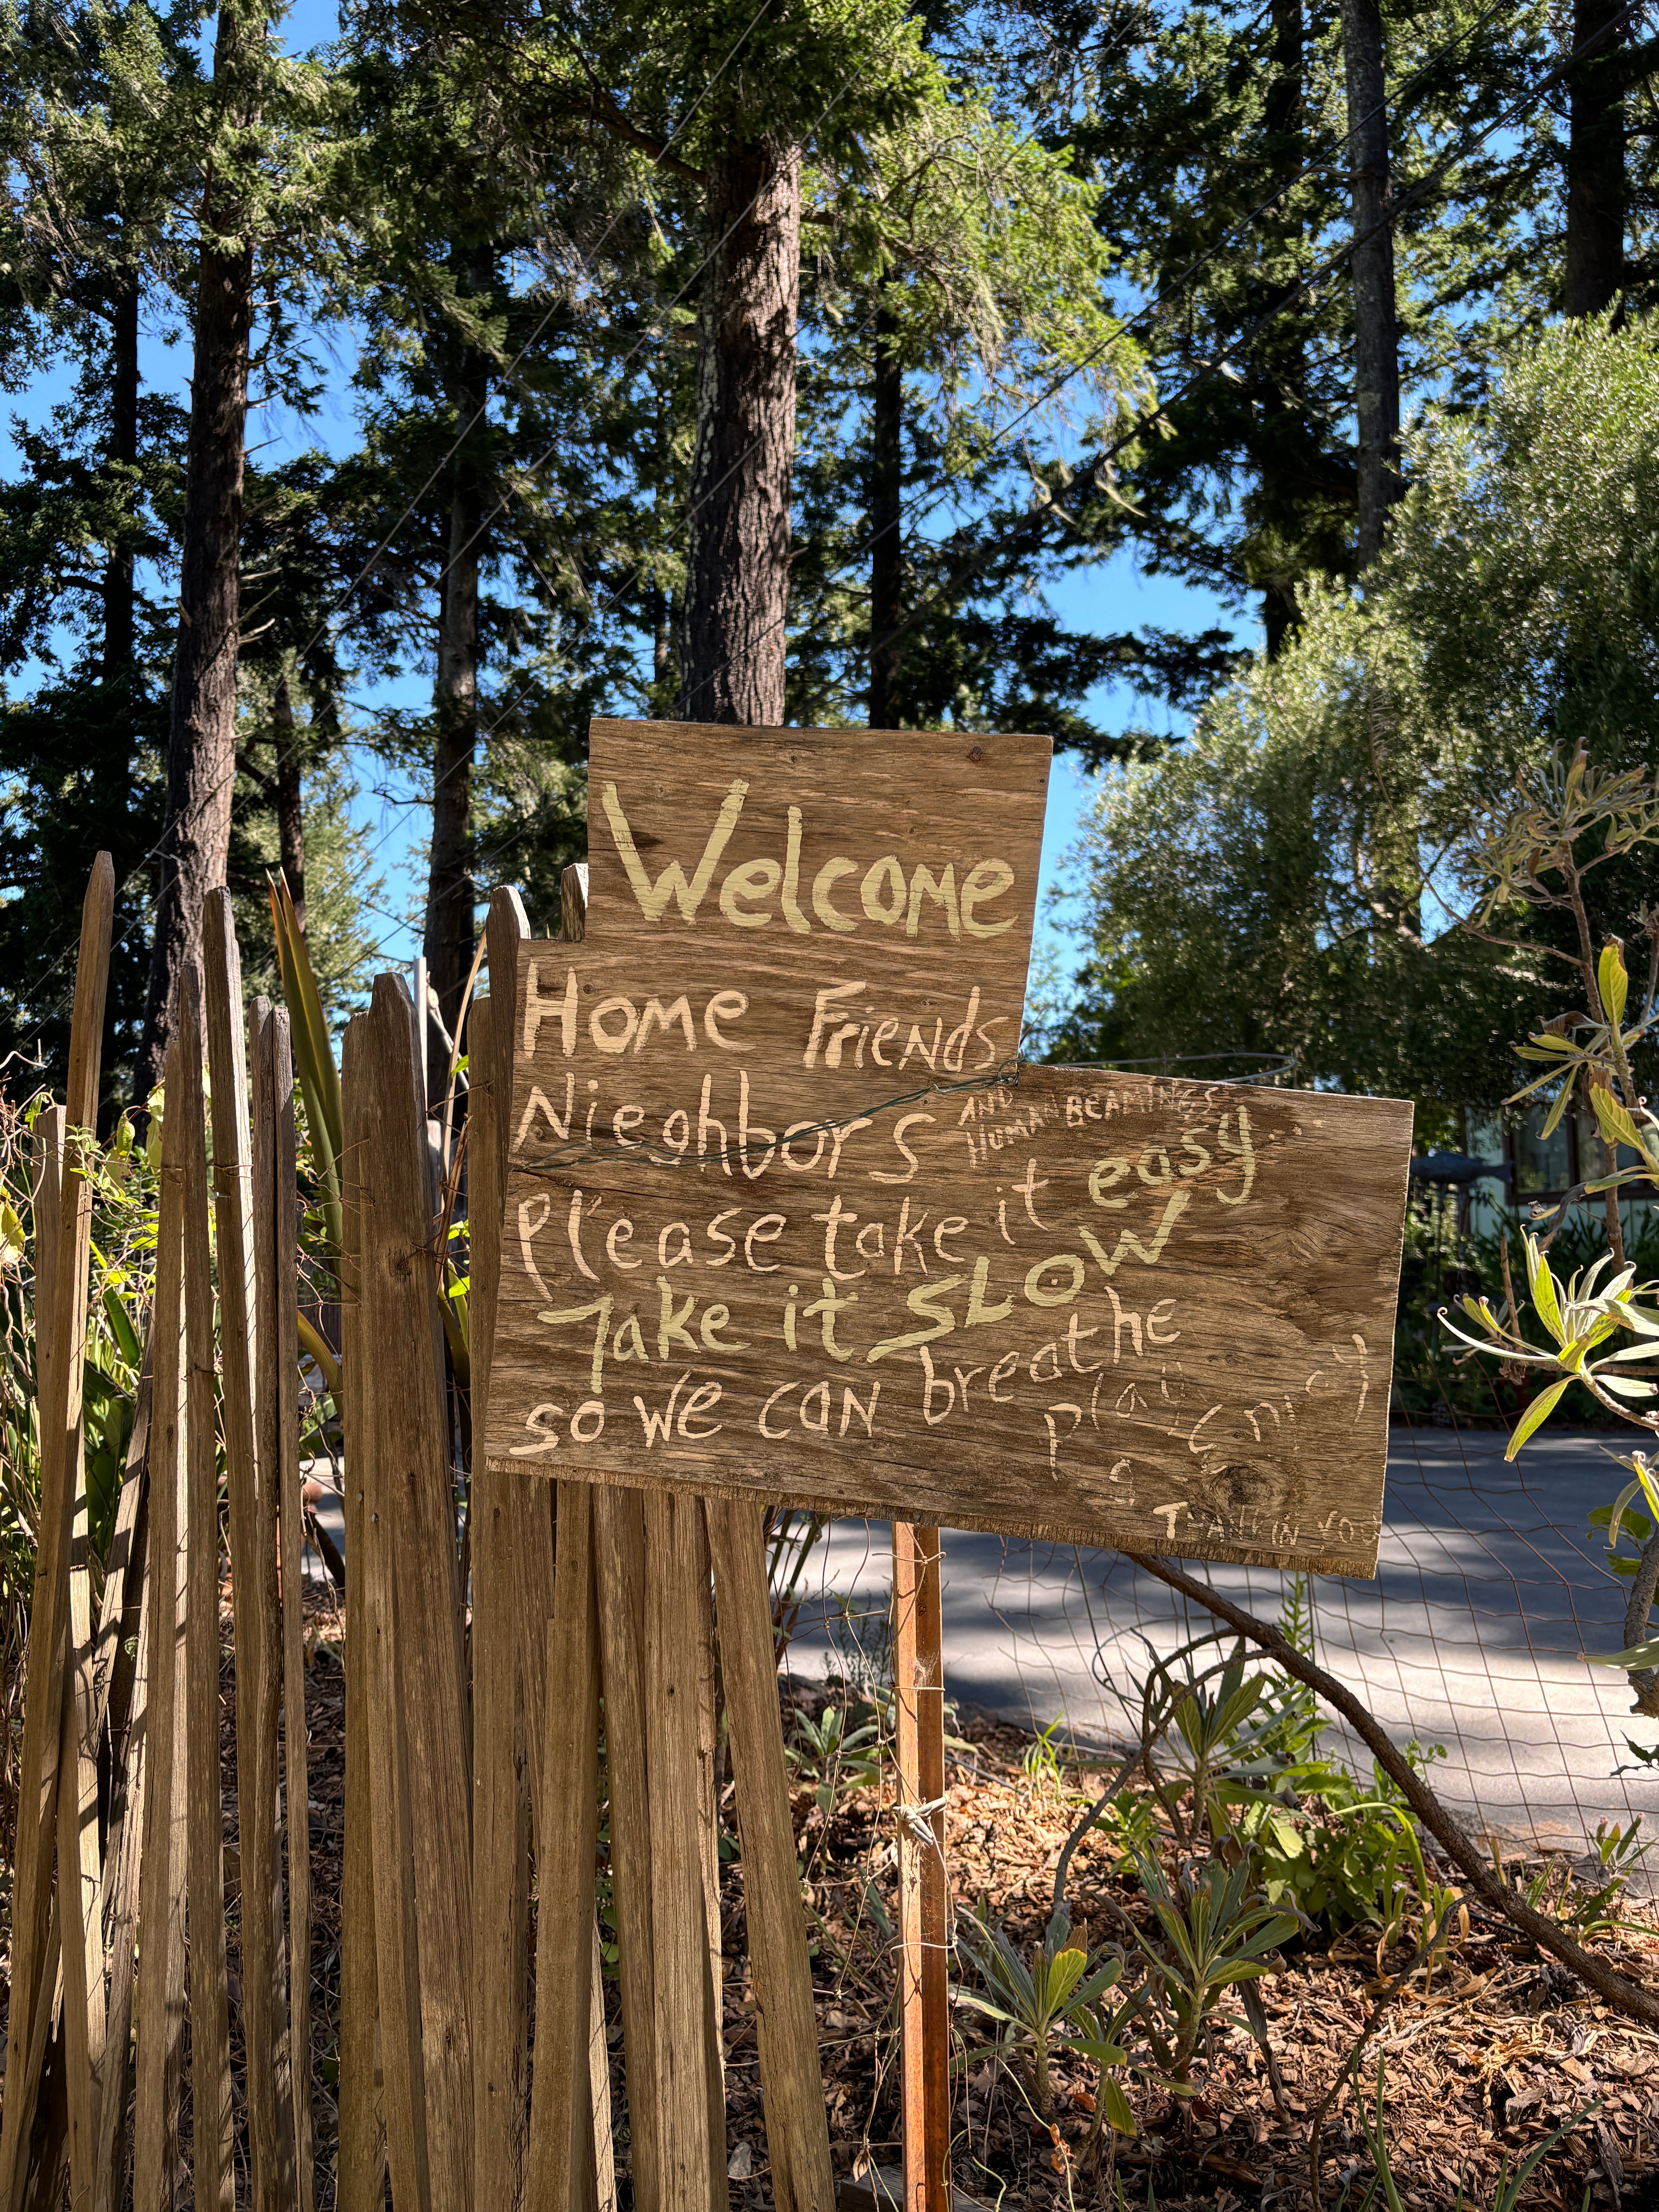 Welcome
Home Friends
Nieghbors AND HUMAN BEAMINGS
please take it easy...
Take it SLOW
so we can breathe
play